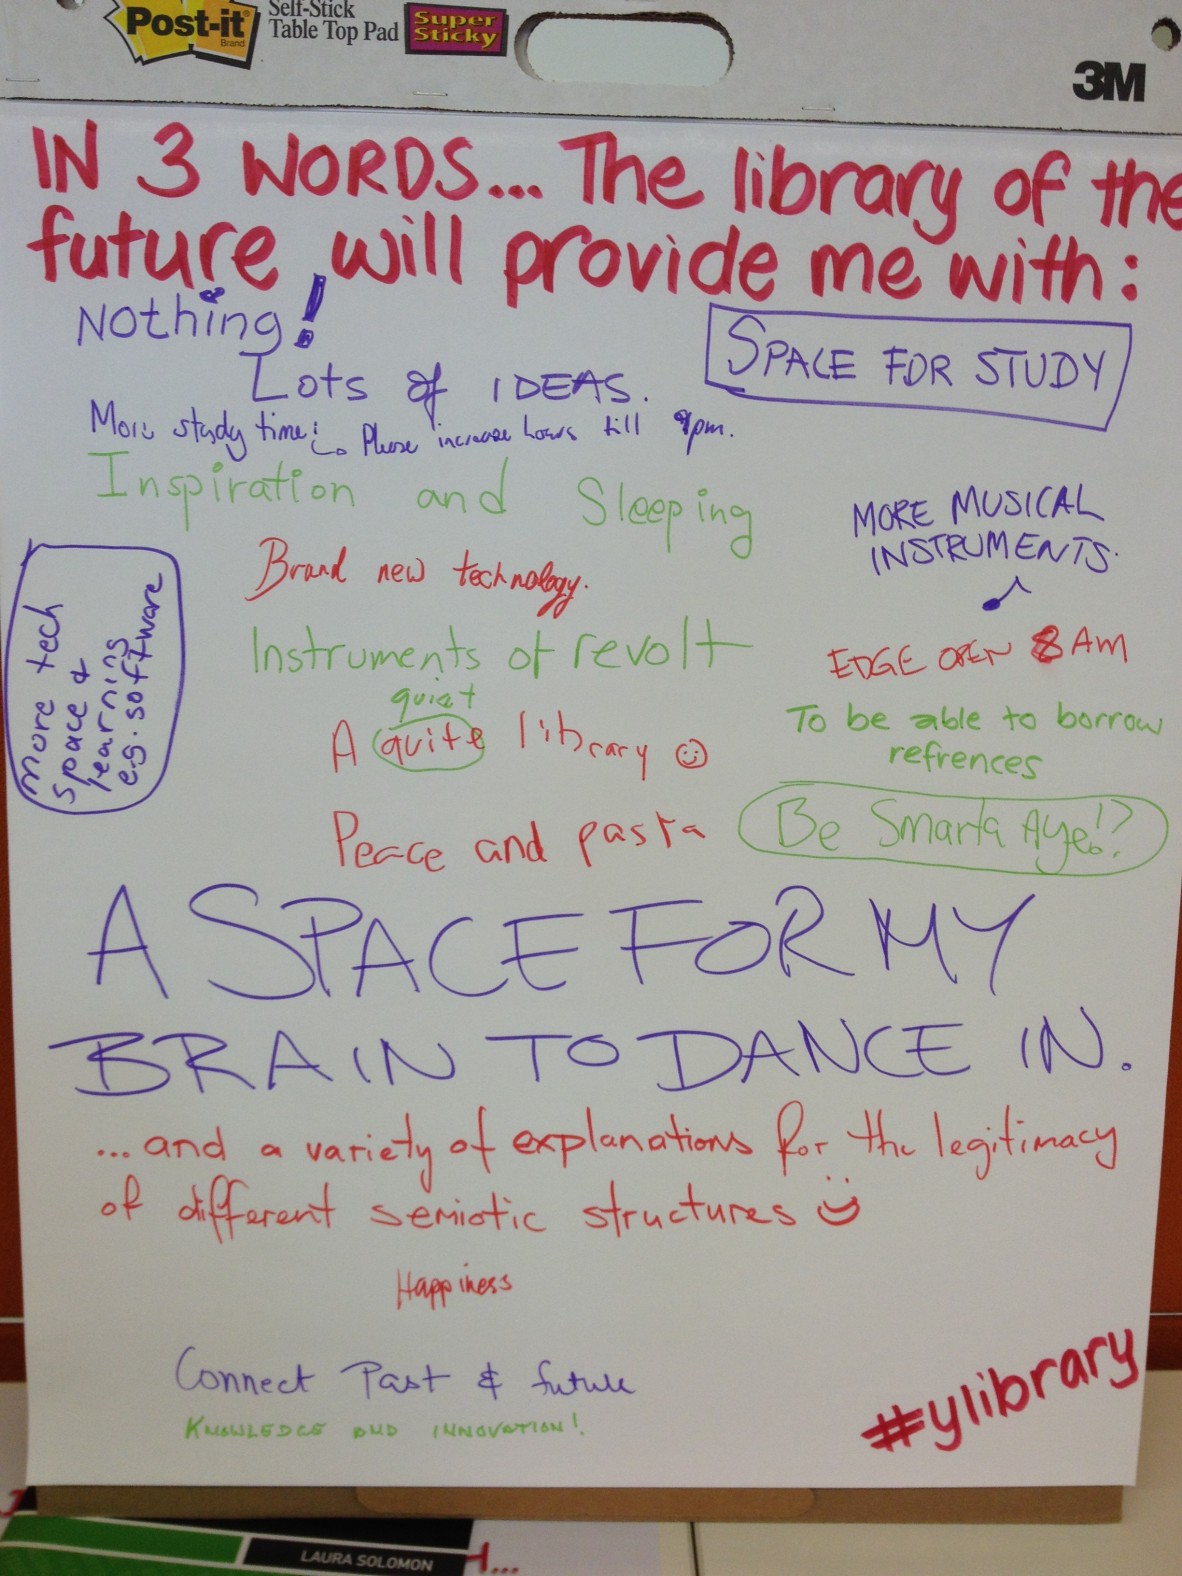 Post-it
Brand
Self-Stick
Table Top Pad
Super
Sticky
3M
IN 3 WORDS... The library of the
future will provide me with:
Nothing!
Lots of IDEAS.
SPACE FOR STUDY
More study time: Please increase hours till 9pm.
Inspiration and Sleeping
MORE MUSICAL
INSTRUMENTS.
Brand new technology.
more tech
space &
learning
e.g. software
Instruments of revolt
EDGE OPEN 8 AM
quiet
A quite library
To be able to borrow
refrences
Peace and pasta
Be Smarta Aye!?
A SPACE FOR MY
BRAIN TO DANCE IN.
...and a variety of explanations for the legitimacy
of different semiotic structures
Happiness
Connect Past & future
KNOWLEDGE AND INNOVATION!
#ylibrary
LAURA SOLOMON